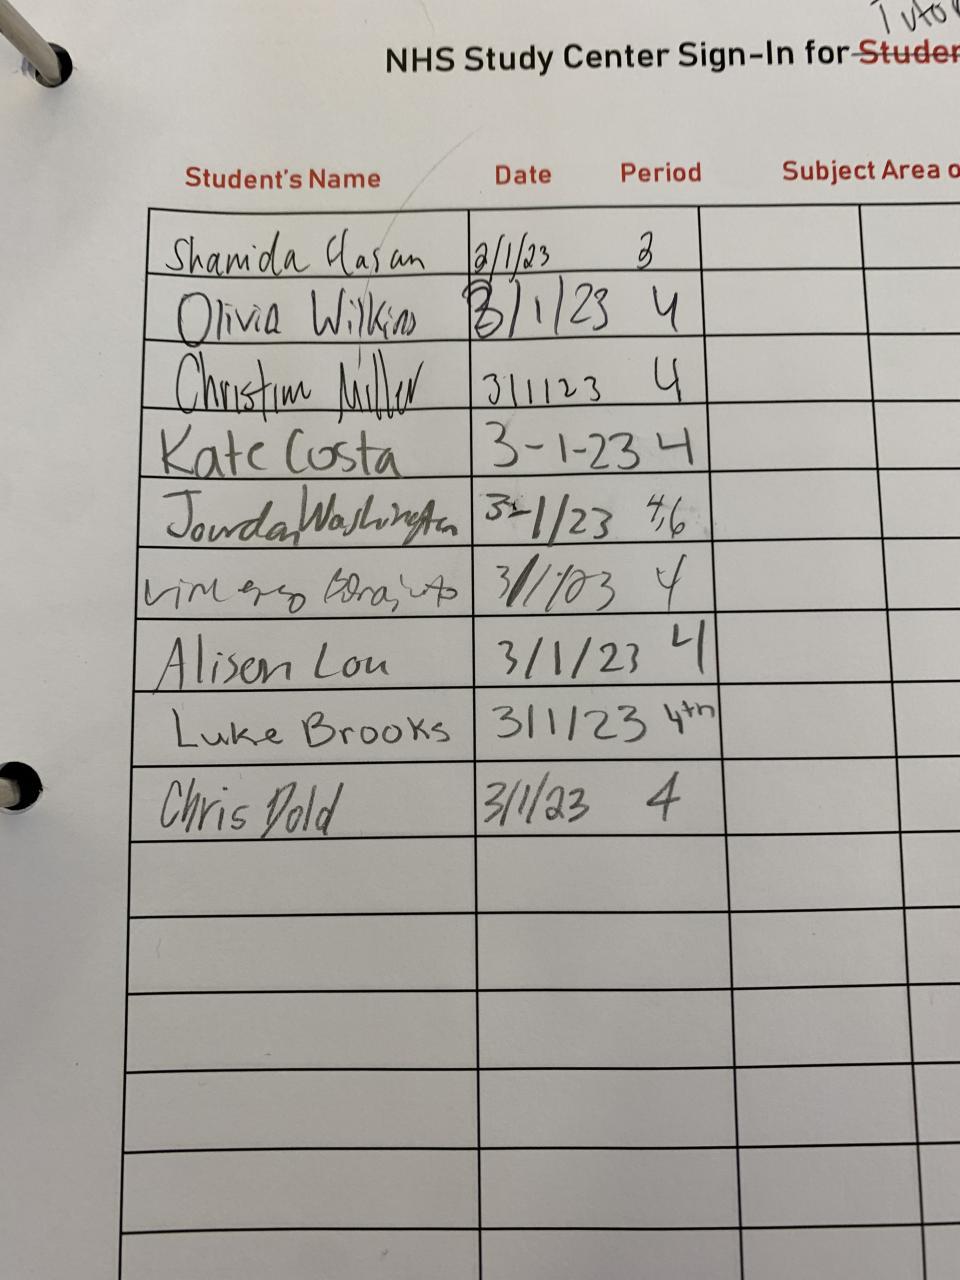 Tuto
NHS Study Center Sign-In for Studen
Student's Name Date Period Subject Area o
Shamida Hasan 2/1/23 3
Olivia Wilkins 3/1/23 4
Miller 3/1/23 4
Kate Costa 3-1-23 4
Jourdan Washington 3-1/23 4,6
3/1/23 4
Alison Lou 3/1/23 4
Luke Brooks 3/1/23 4th
Chris Dold 3/1/23 4